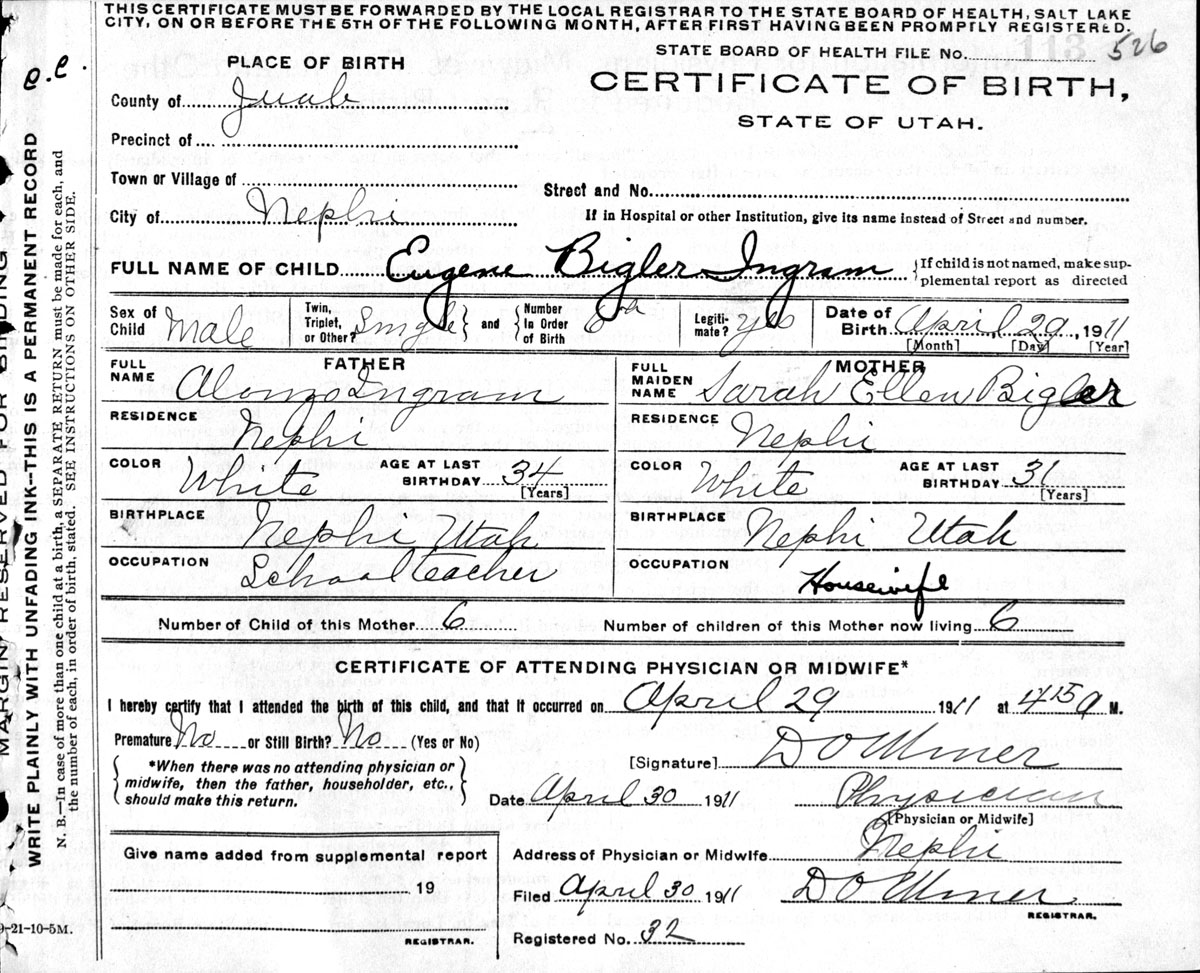 THIS CERTIFICATE MUST BE FORWARDED BY THE LOCAL REGISTRAR TO THE STATE BOARD OF HEALTH, SALT LAKE
CITY, ON OR BEFORE THE 5TH OF THE FOLLOWING MONTH, AFTER FIRST HAVING BEEN PROMPTLY REGISTERED.
STATE BOARD OF HEALTH FILE No. 113 526
PLACE OF BIRTH
CERTIFICATE OF BIRTH,
STATE OF UTAH.
County of Juab
Precinct of
Town or Village of
Street and No.
City of Nephi
If in Hospital or other Institution, give its name instead of Street and number.
FULL NAME OF CHILD Eugene Bigler Ingram {If child is not named, make sup-
plemental report as directed
Sex of Child Male Twin, Triplet, or Other? Single } and { Number In Order of Birth 6th Legiti- mate? yes Date of Birth April 29, 1911
[Month] [Day] [Year]
FATHER
FULL NAME Alonzo Ingram
RESIDENCE Nephi
COLOR White AGE AT LAST BIRTHDAY 34 [Years]
BIRTHPLACE Nephi Utah
OCCUPATION School teacher
MOTHER
FULL MAIDEN NAME Sarah Ellen Bigler
RESIDENCE Nephi
COLOR White AGE AT LAST BIRTHDAY 31 [Years]
BIRTHPLACE Nephi Utah
OCCUPATION Housewife
Number of Child of this Mother 6 Number of children of this Mother now living 6
CERTIFICATE OF ATTENDING PHYSICIAN OR MIDWIFE*
I hereby certify that I attended the birth of this child, and that it occurred on April 29 1911 at 415 a M.
Premature No or Still Birth? No (Yes or No)
*When there was no attending physician or
midwife, then the father, householder, etc.,
should make this return.
[Signature] D O Miner
Date April 30 1911 Physician
[Physician or Midwife]
Give name added from supplemental report
19
REGISTRAR.
Address of Physician or Midwife Nephi
Filed April 30 1911 D O Miner
REGISTRAR.
Registered No. 32
9-21-10-5M.
MARGIN RESERVED FOR BINDING
WRITE PLAINLY WITH UNFADING INK—THIS IS A PERMANENT RECORD O.C.
N. B.—In case of more than one child at a birth, a SEPARATE RETURN must be made for each, and
the number of each, in order of birth, stated. SEE INSTRUCTIONS ON OTHER SIDE.